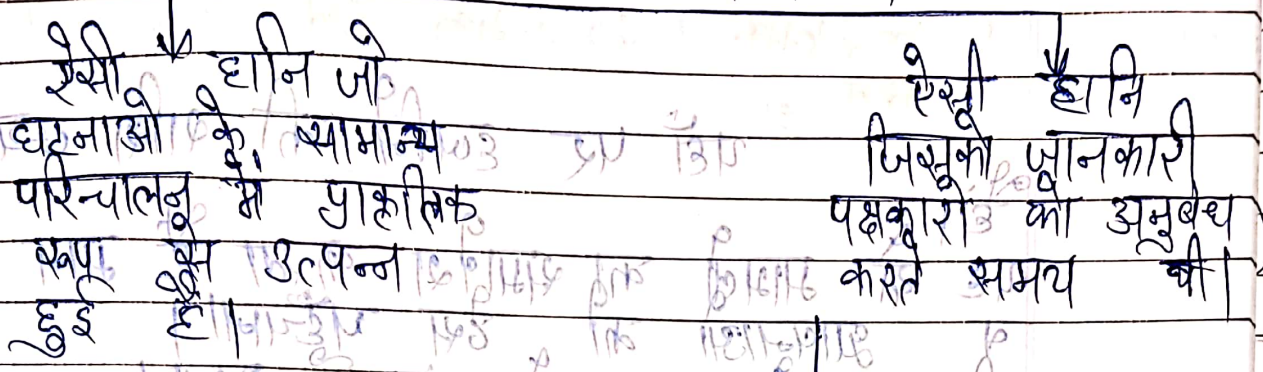 ऐसी हानि जो
घटनाओं के सामान्य
परिचालन में प्राकृतिक
रूप से उत्पन्न
हुई है।
ऐसी हानि
जिसकी जानकारी
पक्षकारों को अनुबंध
करते समय थी।